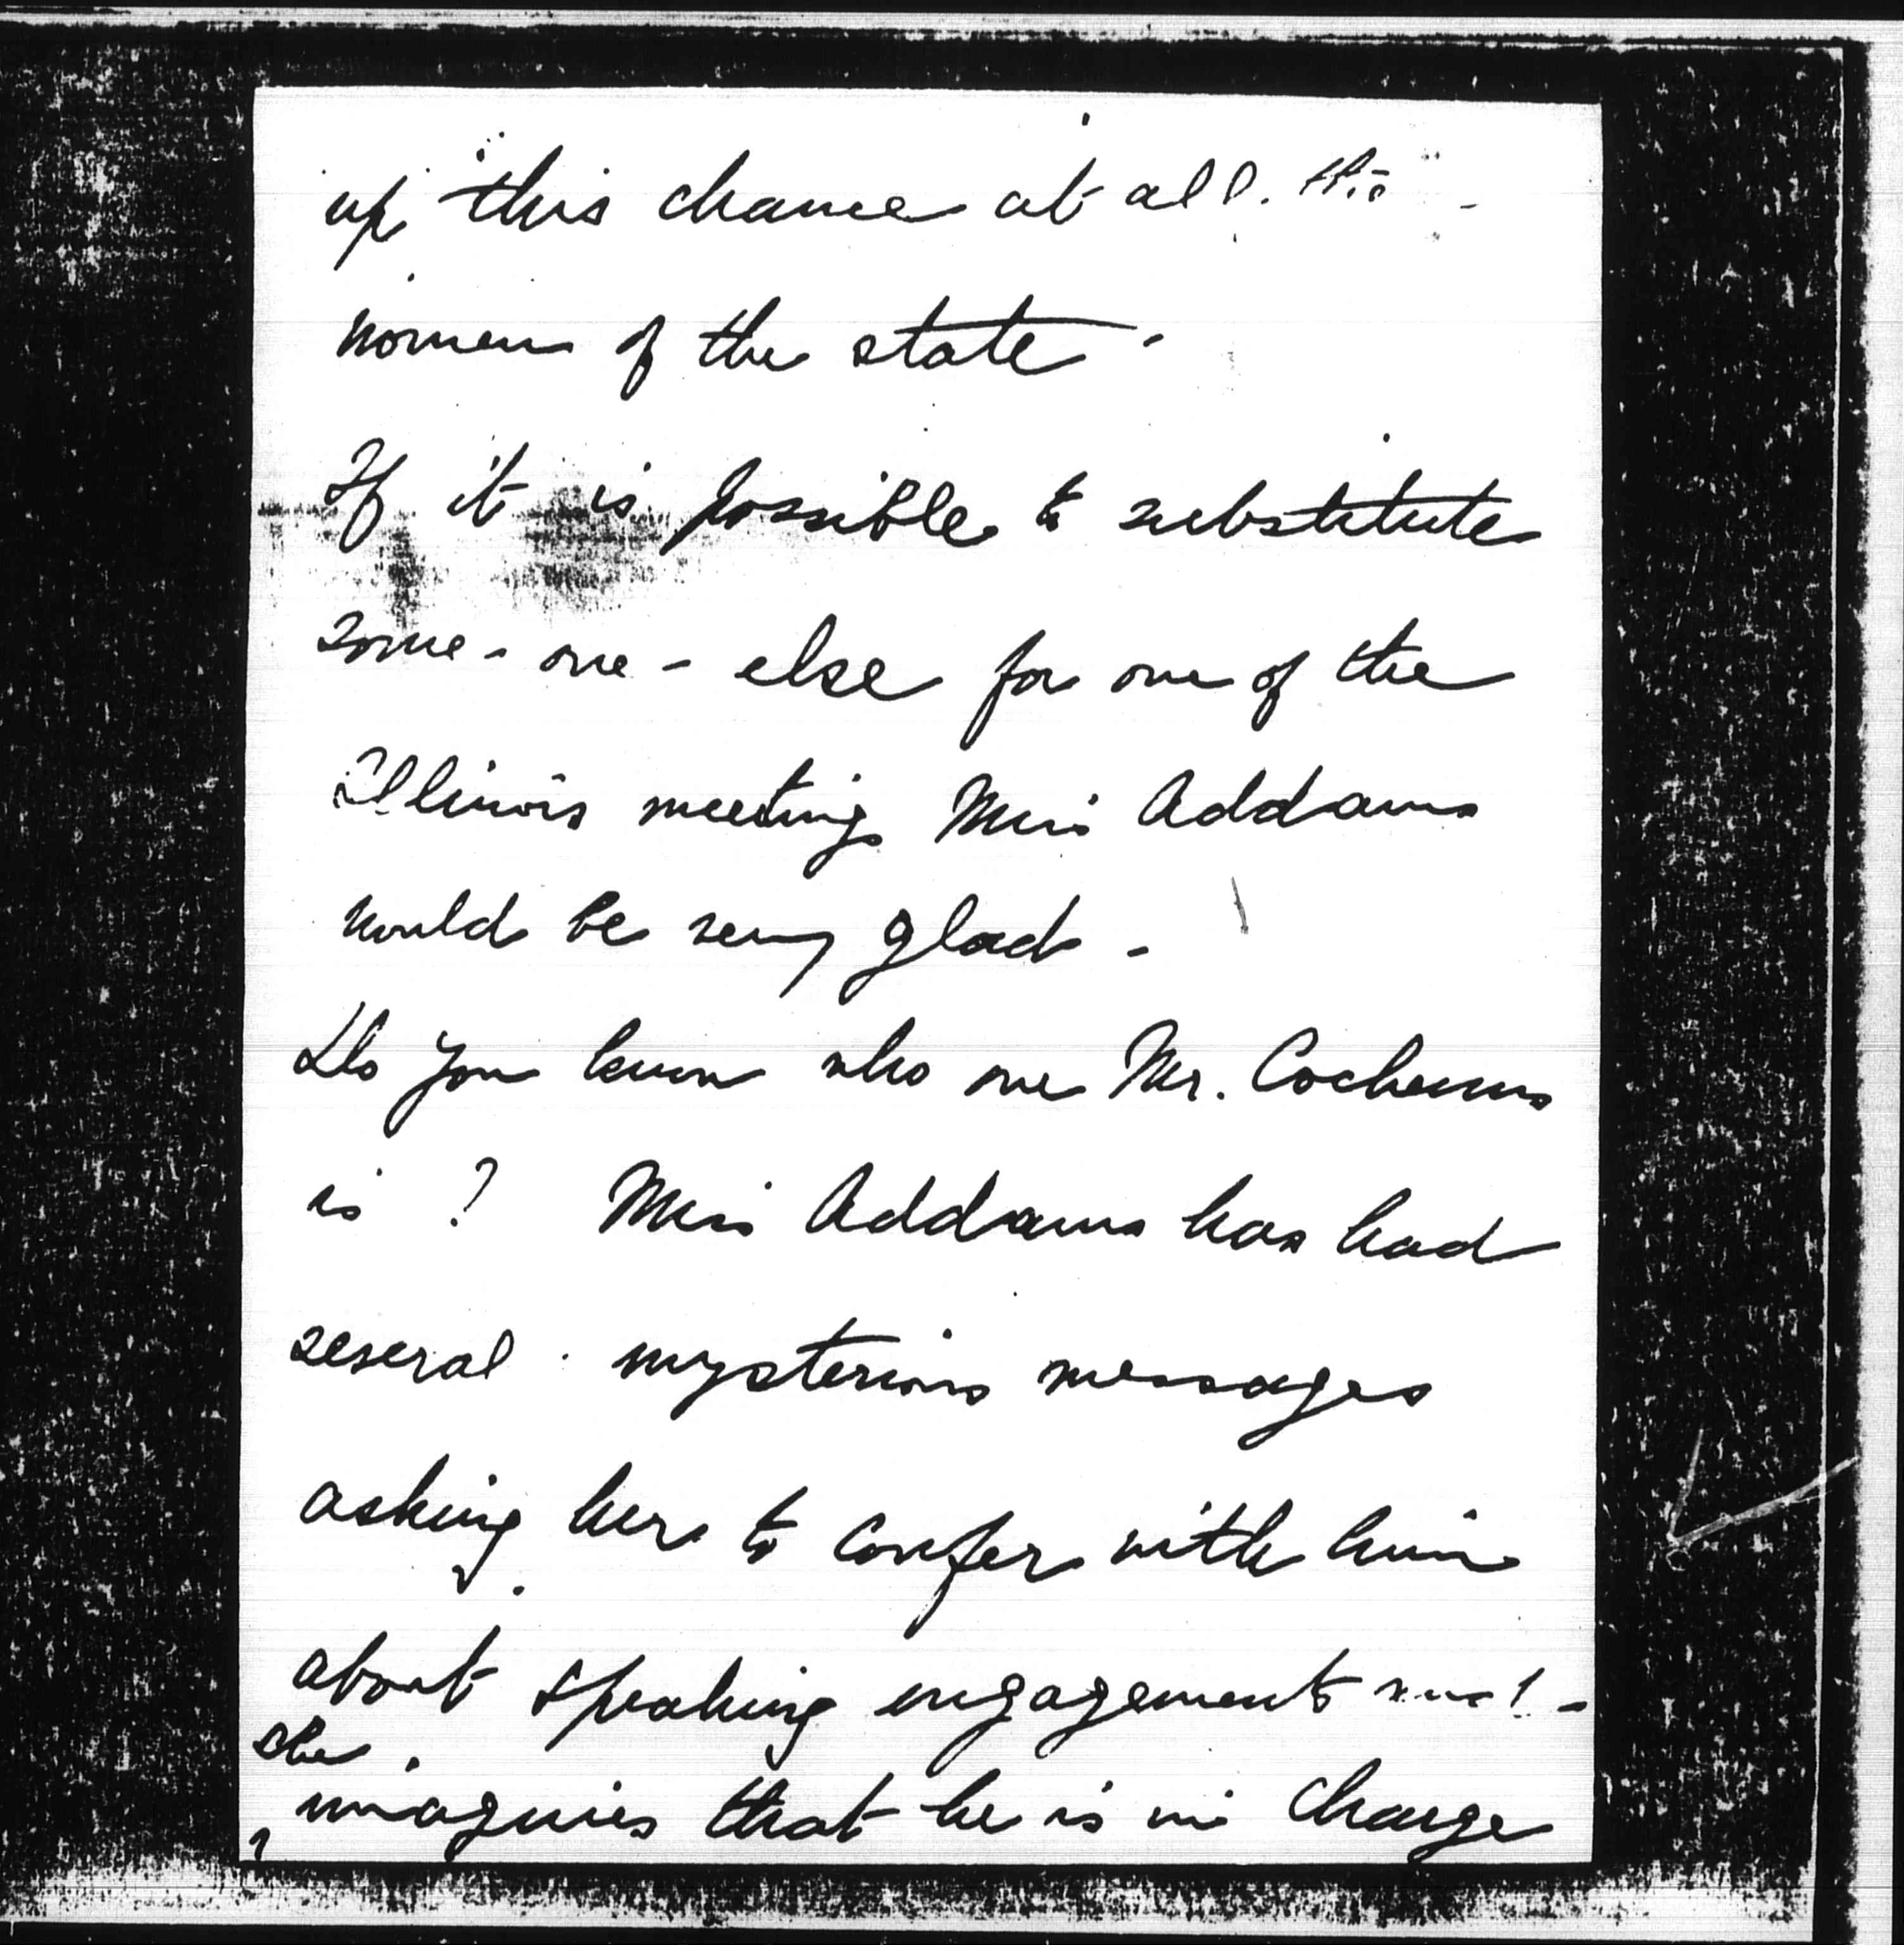 up this chance at all the
women of the state -
If it is possible to substitute
some - one - else for one of the
Illinois meetings Miss Addams
would be very glad -
Do you know who one Mr. Cochems
is ? Miss Addams has had
several mysterious messages
asking her to confer with him
about speaking engagements and -
she
imagines that he is in charge